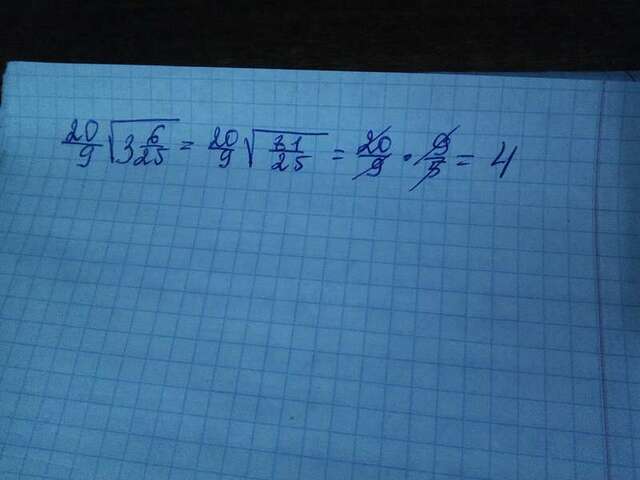 20/9 √(3 6/25) = 20/9 √(81/25) = 20/9 • 9/5 = 4